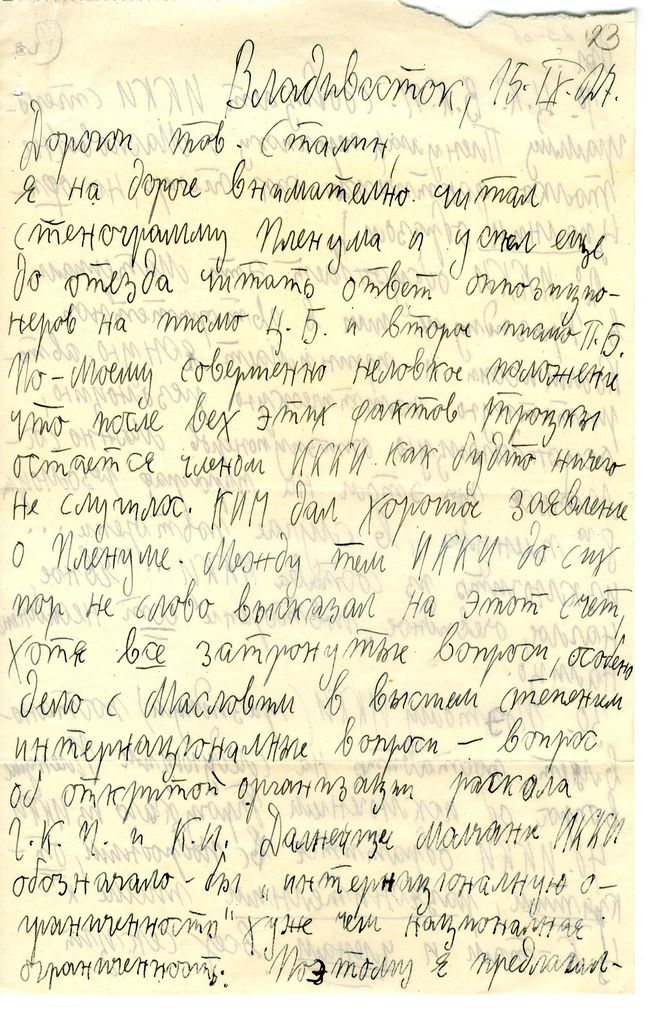 23
Владивосток, 15.IX.27.
Дорогой тов. Сталин,
я на дороге внимателно читал
стенограмму Пленума и успел еще
до отезда читать ответ оппозицио-
неров на писмо Ц.Б. и второе писмо П.Б.
По-моему совершенно неловкое положение
что после вех этих фактов Троцкы
остается членом ИККИ как будто ничего
не случилх. КИМ дал хорошое заявление
о Пленуме. Между тем ИККИ до сих
пор не слово высказал на этот счет,
хотя все затронутые вопроси, особено
дело с Масловым в высшем степенем
интернационалные вопроси – вопрос
об открытой организации раскола
Г.К.П. и К.И. Далнейшее молчание ИККИ
обозначало-бы „интернационалную о-
граниченность" хуже чем национальная
ограниченность. Поэтому я предлагал-